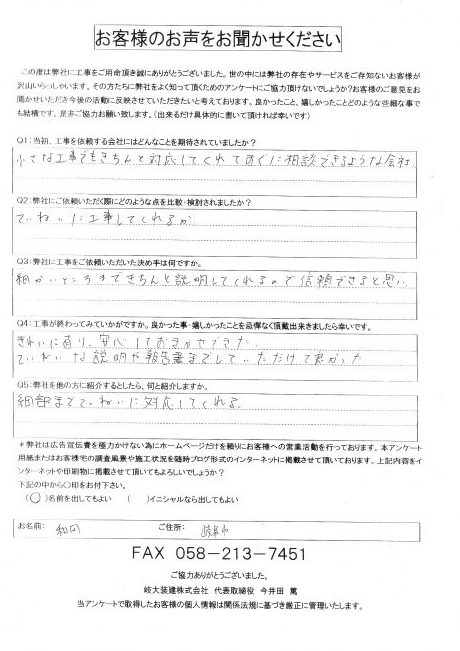 お客様のお声をお聞かせください
この度は弊社に工事をご用命頂き誠にありがとうございました。世の中には弊社の存在やサービスをご存知ないお客様が
沢山いらっしゃいます。その方たちに弊社をよく知って頂くためのアンケートにご協力頂けないでしょうか?お客様のご意見をお
聞かせいただき今後の活動に反映させていただきたいと考えております。良かったこと、嬉しかったことどのような些細な事で
も結構です。是非ご協力お願い致します。(出来るだけ具体的に書いて頂ければ幸いです)
Q1:当初、工事を依頼する会社にはどんなことを期待されていましたか?
小さな工事でもきちんと対応してくれてすぐに相談できるような会社
Q2:弊社にご依頼いただく際にどのような点を比較・検討されましたか?
ていねいに工事してくれるか
Q3:弊社に工事をご依頼いただいた決め手は何ですか。
細かいところまできちんと説明してくれるので信頼できると思い
Q4:工事が終わってみていかがですか。良かった事・嬉しかったことを忌憚なく頂戴出来きましたら幸いです。
きれいになり、安心しておまかせできた
ていねいな説明や報告書までしていただけて良かった
Q5:弊社を他の方に紹介するとしたら、何と紹介しますか。
細部までていねいに対応してくれる
*弊社は広告宣伝費を極力かけない為にホームページだけを頼りにお客様への営業活動を行っております。本アンケート
用紙またはお客様宅の調査風景や施工状況を随時ブログ形式のインターネットに掲載させて頂いております。上記内容をイ
ンターネットや印刷物に掲載させて頂いてもよろしいでしょうか?
下記の中から〇印をお付下さい。
(〇)名前を出してもよい ( )イニシャルなら出してもよい
お名前: 和田 ご住所: 岐阜市
FAX 058-213-7451
ご協力ありがとうございました。
岐大装建株式会社 代表取締役 今井田 篤
当アンケートで取得したお客様の個人情報は関係法規に基づき厳正に管理いたします。